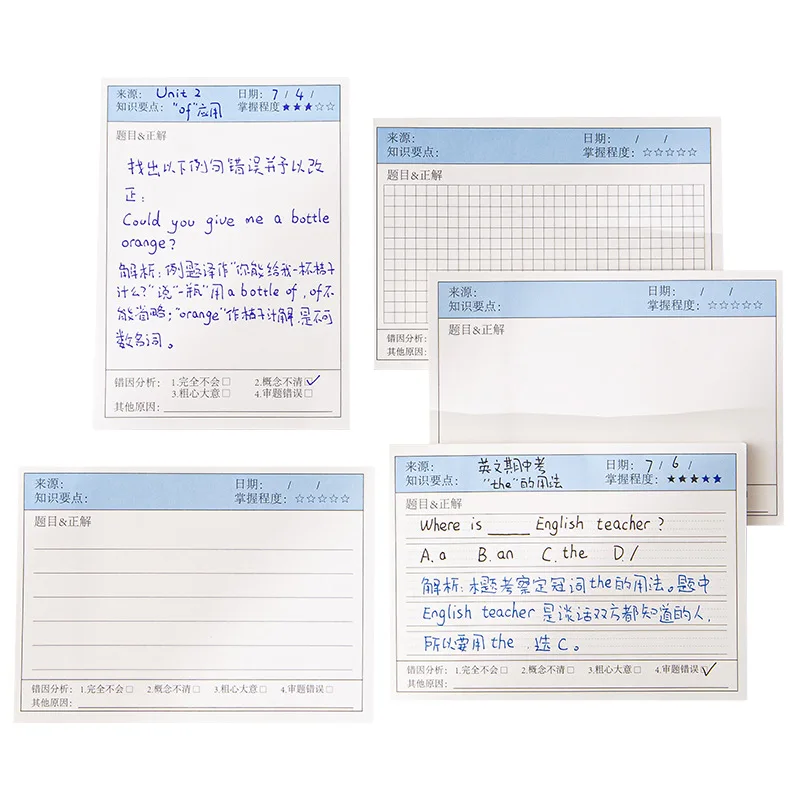 来源: Unit 2 日期: 7 / 4 /
知识要点: "of"应用 掌握程度★★★☆☆
题目&正解
找出以下例句错误并予以改
正:
Could you give me a bottle
orange?
解析: 例题译作"你能给我一杯桔子
什么?"说"一瓶"用a bottle of, of不
能省略; "orange"作桔子汁解, 是不可
数名词。
错因分析: 1.完全不会□ 2.概念不清☑
3.粗心大意□ 4.审题错误□
其他原因:
来源: 日期: / /
知识要点: 掌握程度: ☆☆☆☆☆
题目&正解
错因分析:
其他原因:
来源: 日期: / /
知识要点: 掌握程度: ☆☆☆☆☆
题目&正解
来源: 日期: / /
知识要点: 掌握程度: ☆☆☆☆☆
题目&正解
错因分析: 1.完全不会□ 2.概念不清□ 3.粗心大意□ 4.审题错误□
其他原因:
来源: 英文期中考 日期: 7 / 6 /
知识要点: "the"的用法 掌握程度: ★★★★★
题目&正解
Where is ____ English teacher?
A. a B. an C. the D. /
解析: 本题考察定冠词the的用法。题中
English teacher 是谈话双方都知道的人,
所以要用 the , 选 C。
错因分析: 1.完全不会□ 2.概念不清□ 3.粗心大意□ 4.审题错误☑
其他原因: